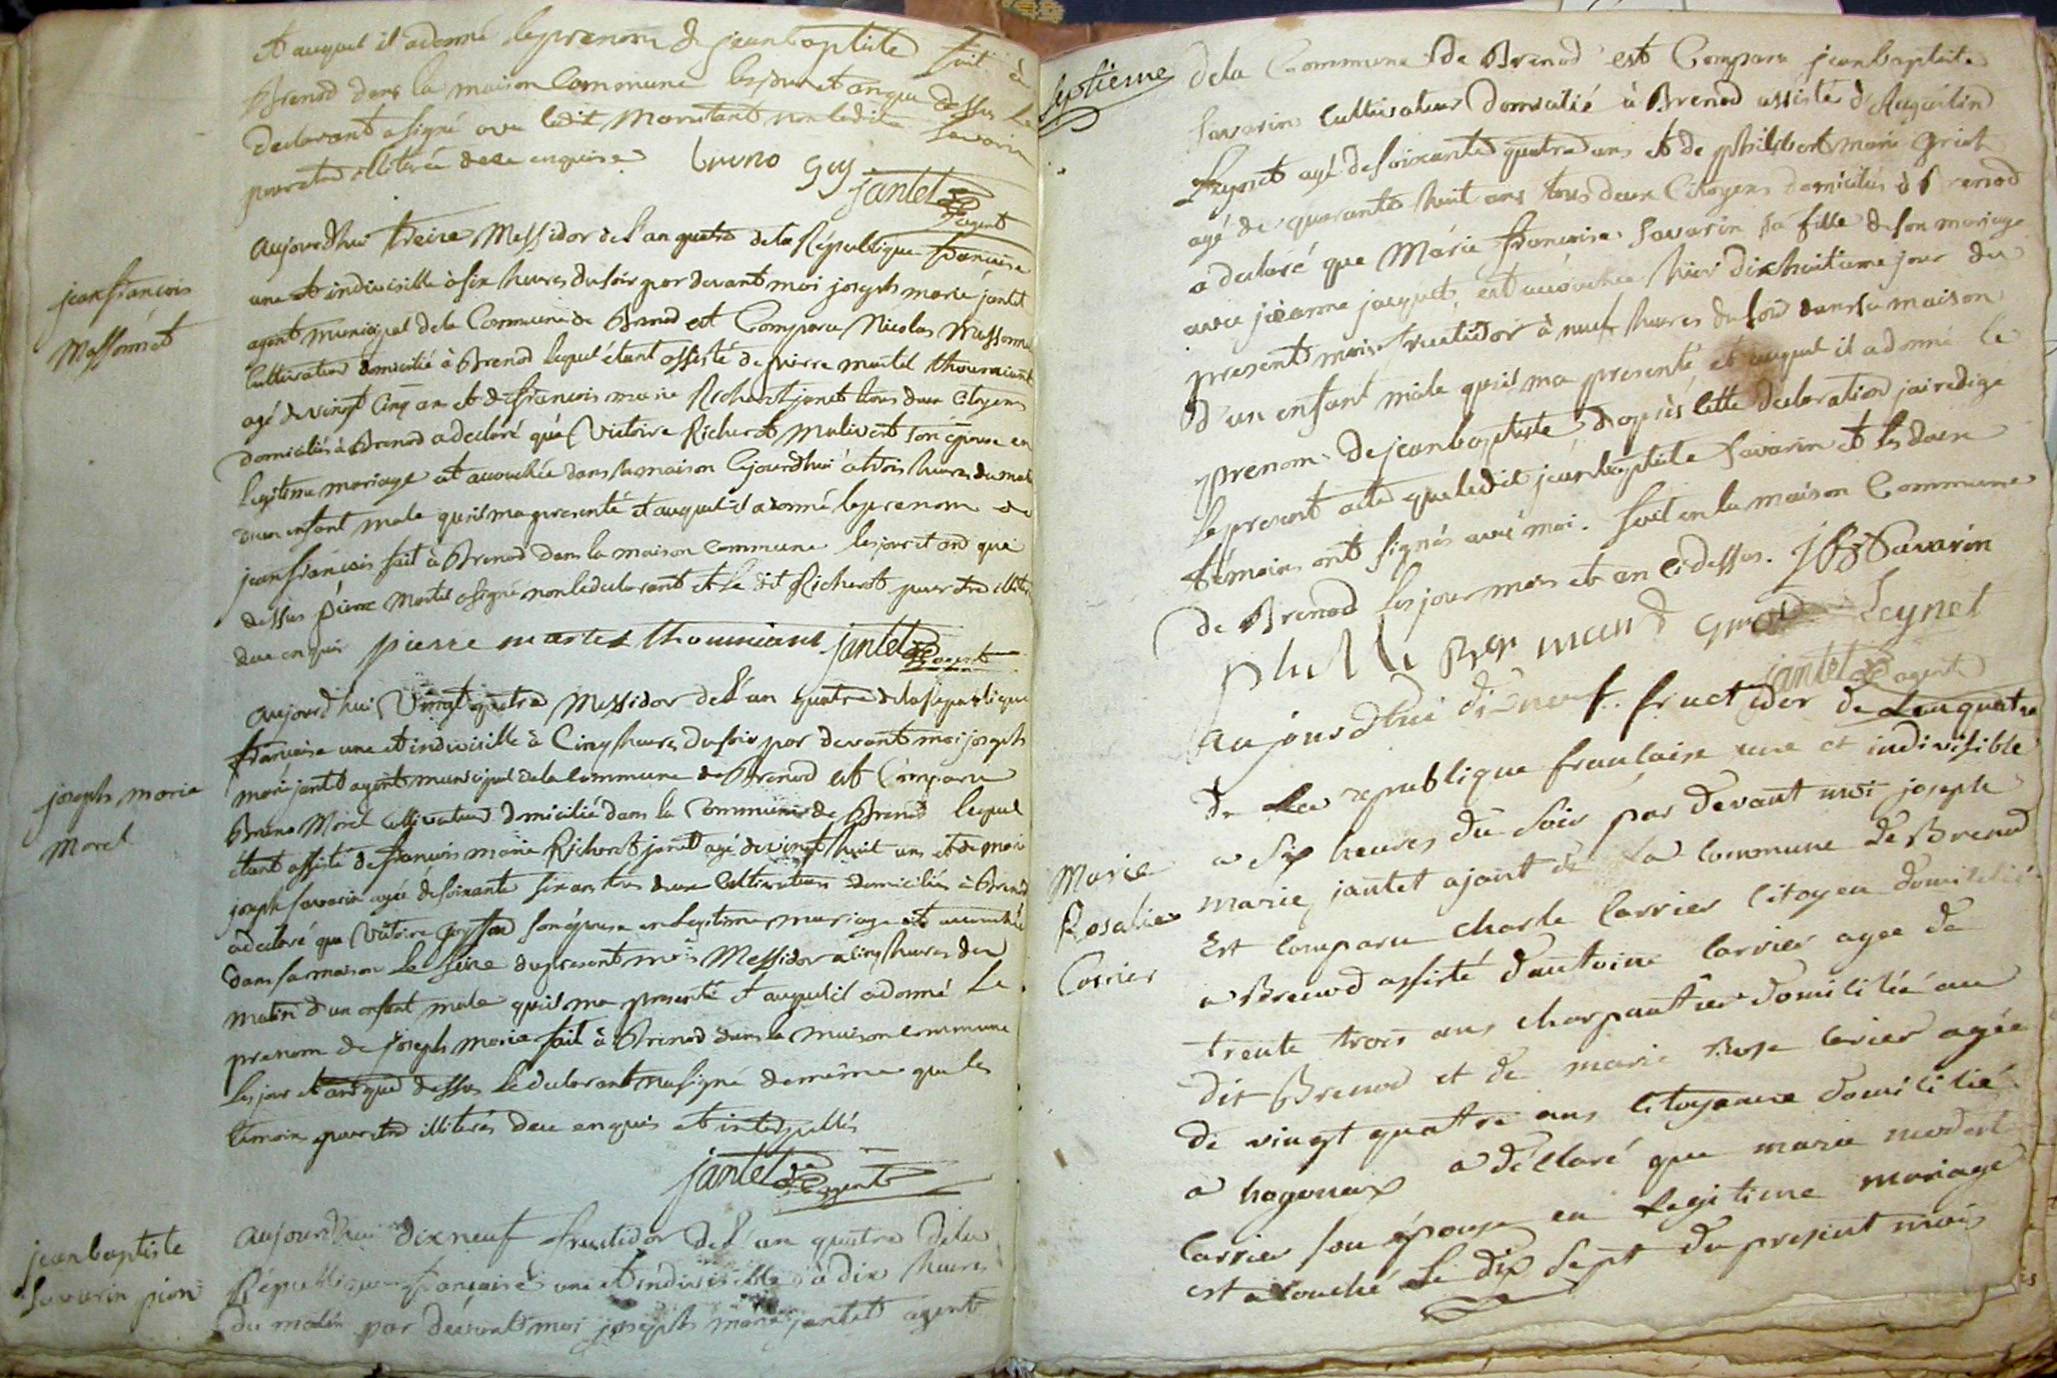 et auquel il a donné le prenom de jeanbaptiste fait à
Brenod dans la maison Commune les jour et an que dessus Le
declarant a signé avec ledit Montant non ledit Savarin
pour etre illiteré de ce enquise bruno Guy
jantet agent
jean francois
Massonnet
aujourdhui treize Messidor de l'an quatre de la République francaise
une et indivisible à six heures du soir par devant moi joseph marie jantet
agent municipal de la Commune de Brenod est Comparu Nicolas Massonnet
Cultivateur domicilié à Brenod lequel étant assisté de pierre martel thoumiant
agé de vingt Cinq ans et de francois marie Richerot janet tous deux citoyens
domiciliés à Brenod a declaré que Victoire Richerot Malivert son épouse en
legitime mariage est accouchée dans sa maison Cejourdhui à trois heures du matin
d'un enfant male qu'il ma presenté et auquel il a donné le prenom de
jean francois fait à Brenod dans la maison commune les jour et and que
dessus pierre Martel a signé non le declarant et le dit Richerot pour etre illiteré
de ce enquis pierre martel thoumiant jantet agent
joseph marie
Morel
aujourd'hui Vingt quatre Messidor de l'an quatre de la République
francaise une et indivisible à Cinq heures du soir par devant moi joseph
marie jantet agent municipal de la commune de Brenod est Comparu
Bruno Morel cultivateur domicilié dans la Commune de Brenod lequel
étant assisté de francois marie Richerot janet agé de vingt huit ans et de marie
joseph Savarin agée de soixante six ans tous deux Cultivateurs domiciliés à Brenod
a declaré que Victoire son épouse en legitime mariage est accouchée
dans sa maison le seize du present mois Messidor a cinq heures du
matin d'un enfant male qu'il ma presenté et auquel il a donné le
prenom de joseph marie fait à Brenod dans la maison commune
les jour et and que dessus le declarant na signé de même que les
témoins pour etre illiterés de ce enquis et interpellés
jantet agent
jeanbaptiste
Savarin pion
aujourdhui dixneuf fructidor de l'an quatre de la
République française une et indivisible à dix heures
du matin par devant moi joseph marie jantet agent
septieme
de la Commune de Brenod est Comparu jeanbaptiste
Savarin Cultivateur domicilié à Brenod assisté d'Augustin
Leynet agé de soixante quatre ans et de philibert marie
agé de quarante huit ans tous deux Citoyens domiciliés à Brenod
a declaré que Marie francoise Savarin sa fille de son mariage
avec jeanne jacquet, est accouchée hier dixhuitieme jour du
present mois fructidor à neuf heures du soir dans sa maison
d'un enfant mâle qu'il ma presenté et auquel il a donné le
prenom de jeanbaptiste d'après cette declaration jai redigé
le present acte que ledit jeanbaptiste Savarin et les deux
témoins ont signés avec moi. fait en la maison Commune
de Brenod les jour mois et an ci dessus. JBt Savarin
Leynet
jantet agent
Marie
Rosalie
Carrier
aujourdhui dixneuf fructidor de Lan quatre
de La republique francaise une et indivisible
a six heures du soir par devant moi joseph
marie jantet ajant de La commune de Brenod
Est comparu charle Carrier Citoyen domicilié
a Brenod assisté dantoine Carrier agee de
trente trois ans charpantier domicilié au
dit Brenod et de marie Rose Carier agée
de vingt quatre ans Citoyenne domicilié
a hogonaix a déclaré que marie modeste
Carrier son épouse en Legitime mariage
est acouché Le dix Sept du present mois